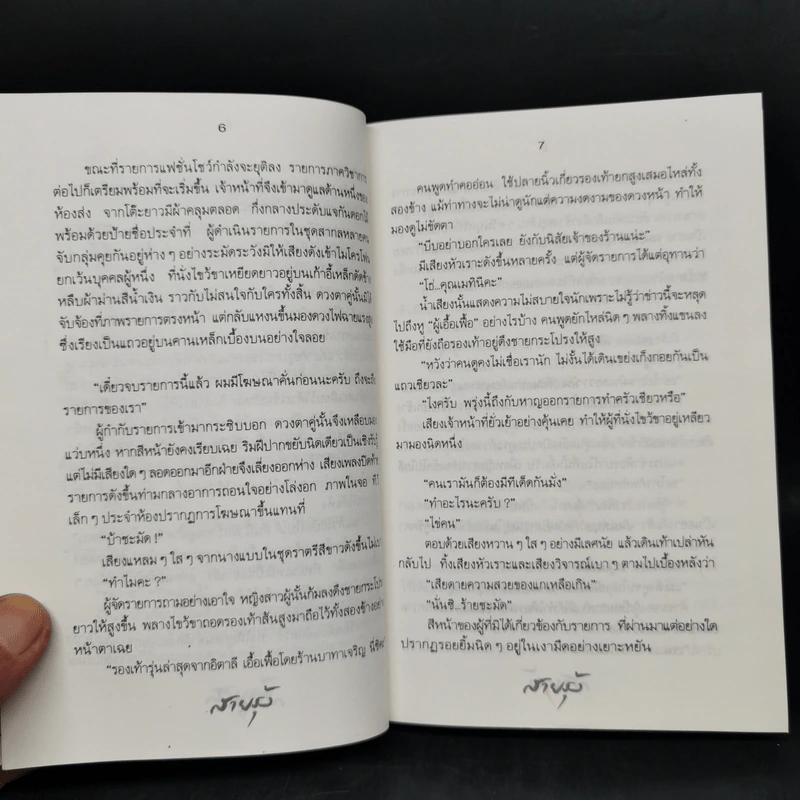 6
ขณะที่รายการแฟชั่นโชว์กำลังจะยุติลง รายการภาควิชาการ
ต่อไปก็เตรียมพร้อมที่จะเริ่มขึ้น เจ้าหน้าที่จึงเข้ามาดูแลด้านหนึ่งของ
ห้องส่ง จากโต๊ะยาวมีผ้าคลุมตลอด กึ่งกลางประดับแจกันดอกไม้
พร้อมด้วยป้ายชื่อประจำที่ ผู้ดำเนินรายการในชุดสากลหลายคน
จับกลุ่มคุยกันอยู่ห่าง ๆ อย่างระมัดระวังมิให้เสียงดังเข้าไมโครโฟน
ยกเว้นบุคคลผู้หนึ่ง ที่นั่งไขว้ขาเหยียดยาวอยู่บนเก้าอี้เหล็กดัดข้าง
หลืบผ้าม่านสีน้ำเงิน ราวกับไม่สนใจกับใครทั้งสิ้น ดวงตาคู่นั้นมิได้
จับจ้องที่ภาพรายการตรงหน้า แต่กลับแหงนขึ้นมองดวงไฟฉายแรงสูง
ซึ่งเรียงเป็นแถวอยู่บนคานเหล็กเบื้องบนอย่างใจลอย
“เดี๋ยวจบรายการนี้แล้ว ผมมีโฆษณาคั่นก่อนนะครับ ถึงจะถึง
รายการของเรา”
ผู้กำกับรายการเข้ามากระซิบบอก ดวงตาคู่นั้นจึงเหลือบมอง
แวบหนึ่ง หากสีหน้ายังคงเรียบเฉย ริมฝีปากขยับนิดเดียวเป็นเชิงรับรู้
แต่ไม่มีเสียงใด ๆ ลอดออกมาอีกฝ่ายจึงเลี่ยงออกห่าง เสียงเพลงปิดท้าย
รายการดังขึ้นท่ามกลางอาการถอนใจอย่างโล่งอก ภาพในจอ ที.วี.
เล็ก ๆ ประจำห้องปรากฏการโฆษณาขึ้นแทนที่
“บ้าชะมัด !”
เสียงแหลม ๆ ใส ๆ จากนางแบบในชุดราตรีสีขาวดังขึ้นไม่เบา
“ทำไมคะ ?”
ผู้จัดรายการถามอย่างเอาใจ หญิงสาวผู้นั้นก้มลงดึงชายกระโปรง
ยาวให้สูงขึ้น พลางไขว้ขาถอดรองเท้าส้นสูงมาถือไว้ทั้งสองข้างอย่าง
หน้าตาเฉย
“รองเท้ารุ่นล่าสุดจากอิตาลี เอื้อเฟื้อโดยร้านบาทาเจริญ นี่ซิคะ”
สายรุ้ง
7
คนพูดทำคออ่อน ใช้ปลายนิ้วเกี่ยวรองเท้ายกสูงเสมอไหล่ทั้ง
สองข้าง แม้ท่าทางจะไม่น่าดูนักแต่ความงดงามของดวงหน้า ทำให้
มองดูไม่ขัดตา
“บีบอย่าบอกใครเลย ยังกับนิสัยเจ้าของร้านแน่ะ”
มีเสียงหัวเราะดังขึ้นหลายครั้ง แต่ผู้จัดรายการได้แต่อุทานว่า
“โธ่..คุณเมทินีคะ”
น้ำเสียงนั้นแสดงความไม่สบายใจนักเพราะไม่รู้ว่าข่าวนี้จะหลุด
ไปถึงหู “ผู้เอื้อเฟื้อ” อย่างไรบ้าง คนพูดยักไหล่นิด ๆ พลางทิ้งแขนลง
ใช้มือที่ยังถือรองเท้าอยู่ดึงชายกระโปรงให้สูง
“หวังว่าคนดูคงไม่เชื่อเรานัก ไม่งั้นได้เดินเขย่งเก็งกอยกันเป็น
แถวเชียวละ”
“ไงครับ พรุ่งนี้ถึงกับหาญออกรายการทำครัวเชียวหรือ”
เสียงเจ้าหน้าที่ยั่วเย้าอย่างคุ้นเคย ทำให้ผู้ที่นั่งไขว้ขาอยู่เหลียว
มามองนิดหนึ่ง
“คนเรามันก็ต้องมีทีเด็ดกันมั่ง”
“ทำอะไรนะครับ ?”
“ไข่คน”
ตอบด้วยเสียงหวาน ๆ ใส ๆ อย่างมีเลศนัย แล้วเดินเท้าเปล่าหัน
กลับไป ทิ้งเสียงหัวเราะและเสียงวิจารณ์เบา ๆ ตามไปเบื้องหลังว่า
“เสียดายความสวยของแกเหลือเกิน”
“นั่นซิ..ร้ายชะมัด”
สีหน้าของผู้ที่มิได้เกี่ยวข้องกับรายการ ที่ผ่านมาแต่อย่างใด
ปรากฏรอยยิ้มนิด ๆ อยู่ในเงามืดอย่างเยาะหยัน
สายรุ้ง